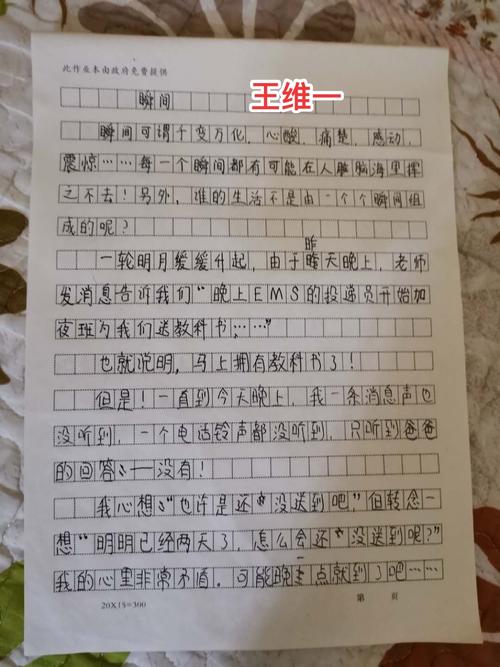 此作业本由政府免费提供
瞬间 王维一
瞬间可谓千变万化，心酸，痛楚，感动，
震惊……每一个瞬间都有可能在人脑脑海里挥
之不去！另外，谁的生活不是由一个个瞬间组
成的呢？
昨
一轮明月缓缓升起，由于天晚上，老师
发消息告诉我们“晚上EMS的投递员开始加
夜班为我们送教科书……”
也就说明，马上拥有教科书了！
但是！一直到今天晚上，我一条消息声也
没听到，一个电话铃声都没听到，只听到爸爸
的回答：——没有！
我心想：“也许是还没送到吧”，但转念一
想“明明已经两天了，怎么会还没送到呢？”
我的心里非常矛盾。可能晚一点就到了吧……
20X15=300 第 页